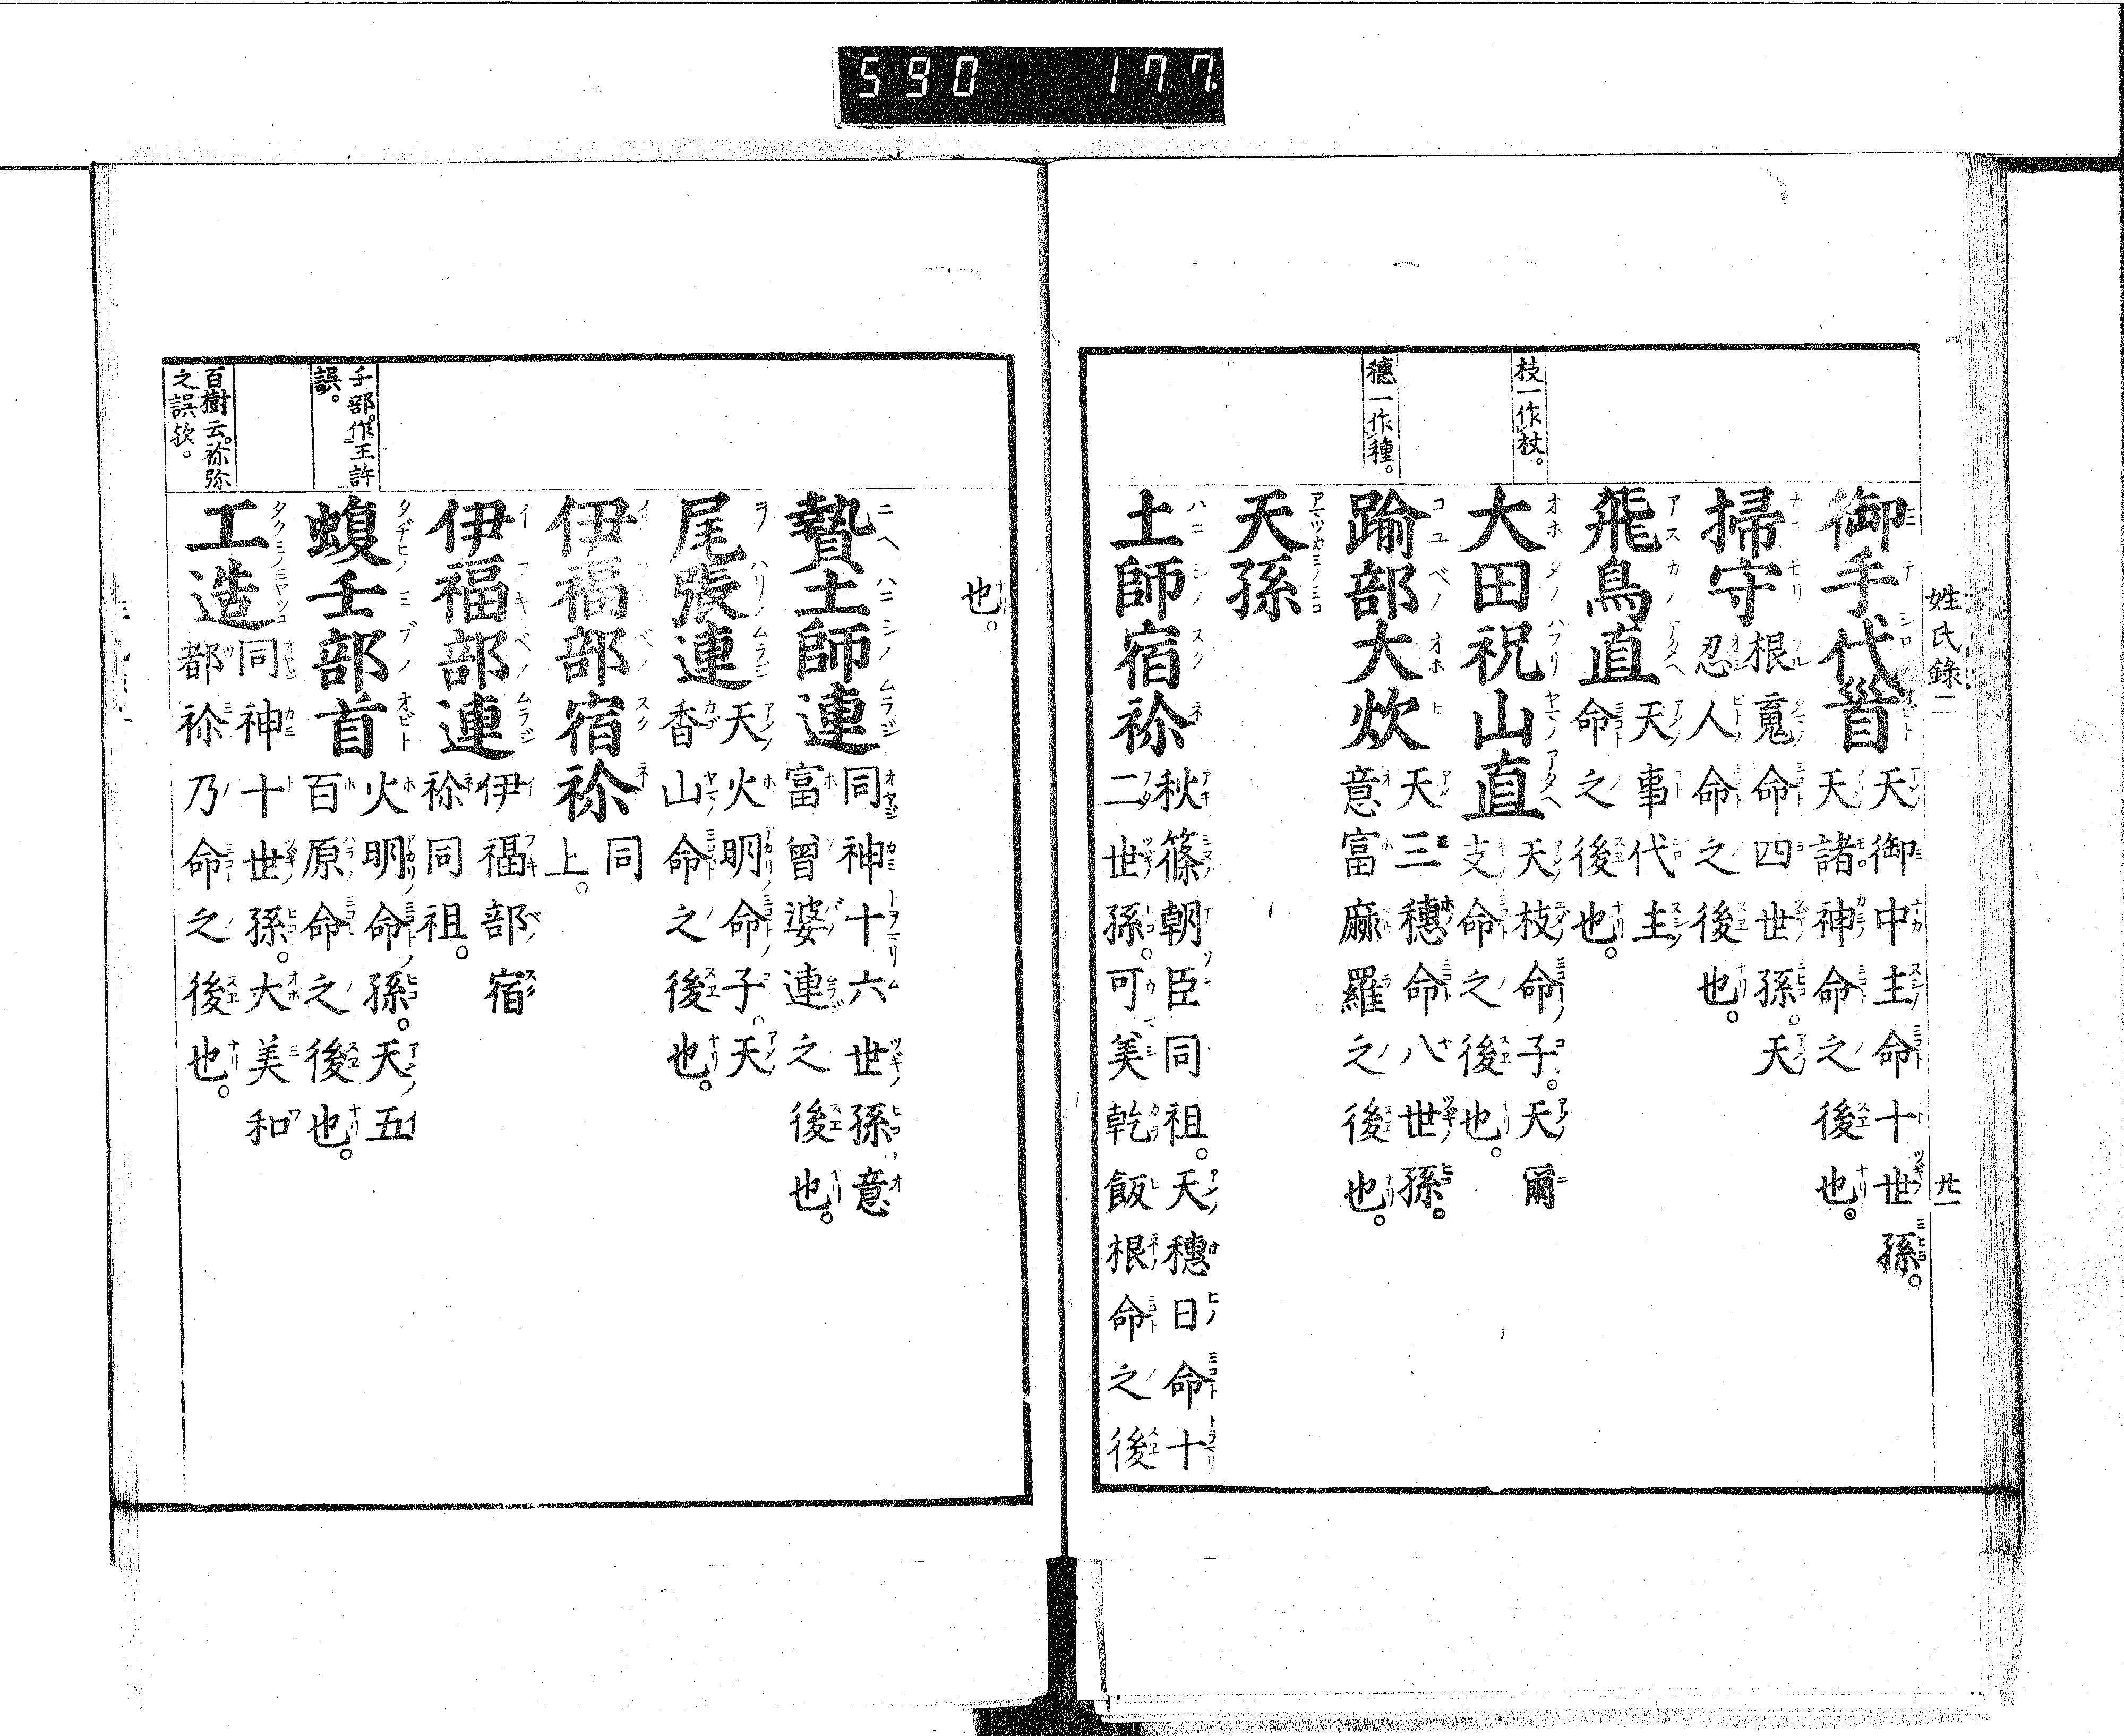 590 177
姓氏錄二
廿一
枝一作杖。
穗一作種。
御手代首
天御中主命十世孫。
天諸神命之後也。
掃守
根䰟命四世孫。天
忍人命之後也。
飛鳥直
天事代主
命之後也。
大田祝山直
天枝命子。天爾
支命之後也。
踰部大炊
天三穗命八世孫。
意富麻羅之後也。
天孫
土師宿祢
秋篠朝臣同祖。天穗日命十
二世孫。可美乾飯根命之後
也。
贄土師連
同神十六世孫意
富曾婆連之後也。
尾張連
天火明命子。天
香山命之後也。
伊福部宿祢
同
上。
伊福部連
伊福部宿
祢同祖。
千部。作王許
誤。
蝮壬部首
火明命孫。天五
百原命之後也。
百樹云。祢弥
之誤欤。
工造
同神十世孫。大美和
都祢乃命之後也。